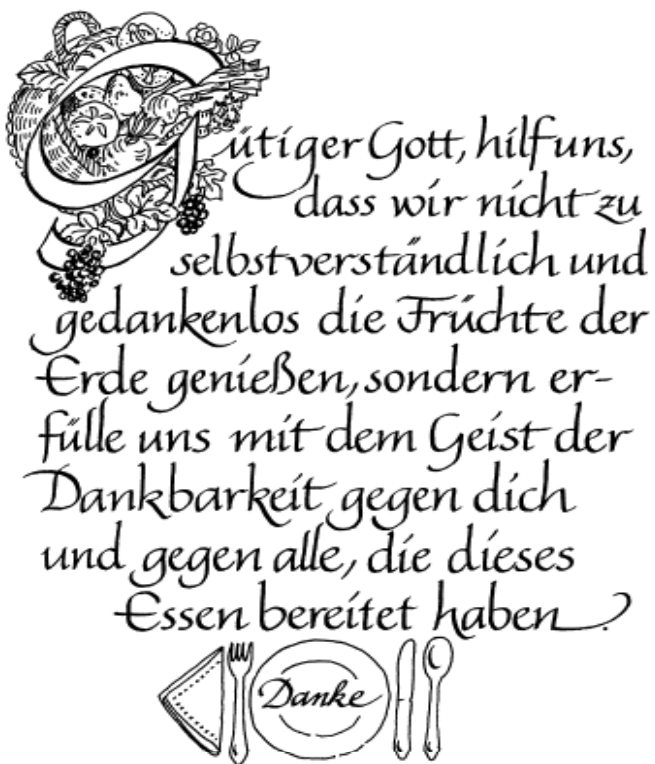 Gütiger Gott, hilf uns,
dass wir nicht zu
selbstverständlich und
gedankenlos die Früchte der
Erde genießen, sondern er-
fülle uns mit dem Geist der
Dankbarkeit gegen dich
und gegen alle, die dieses
Essen bereitet haben.
Danke